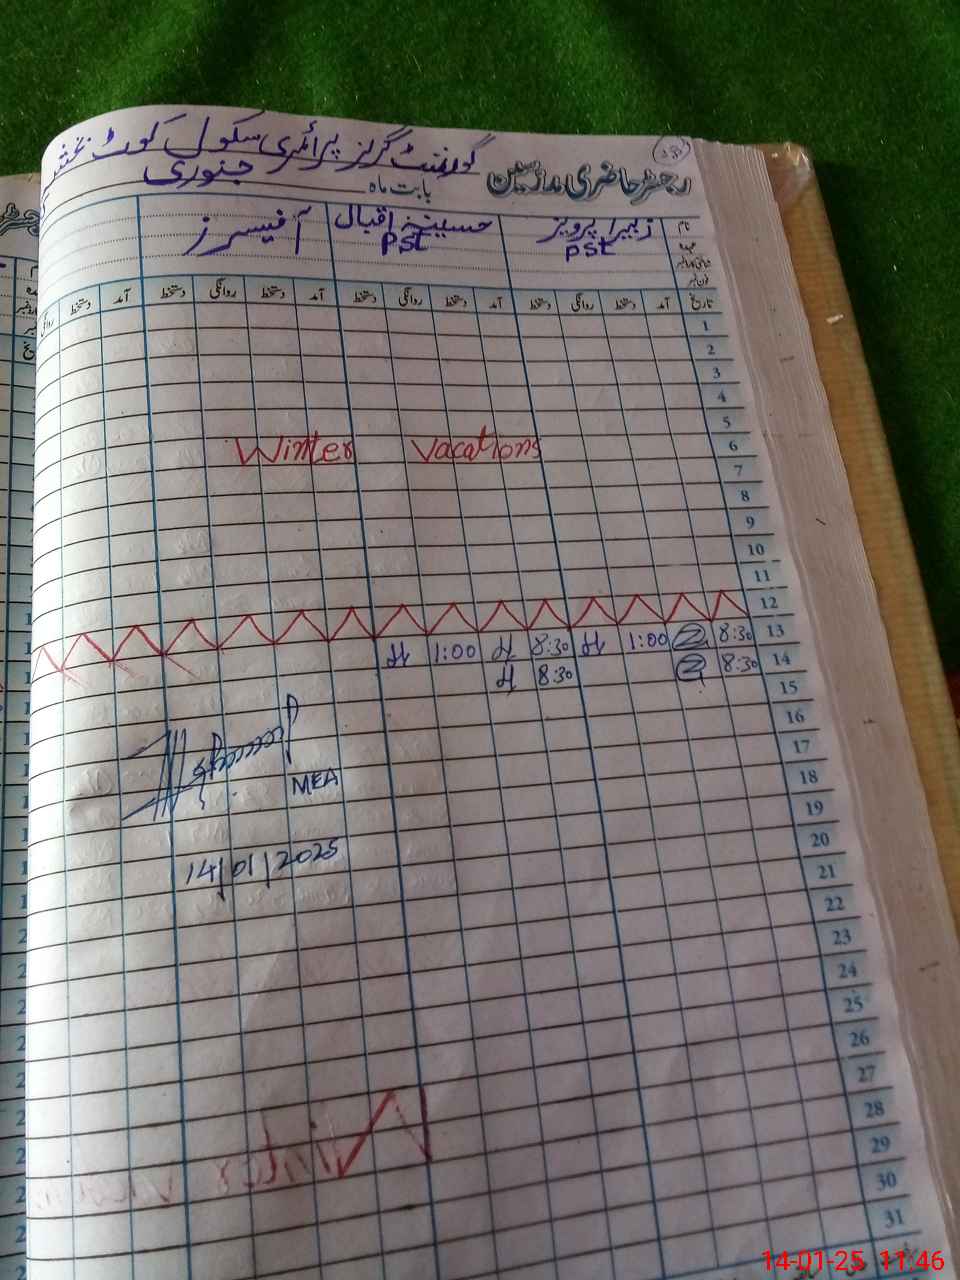 گورنمنٹ گرلز پرائمری سکول کوٹ
رجسٹر حاضری مدرسین بابت ماہ جنوری
نام زبیرا پرویز حسینہ اقبال آفیسرز
عہدہ PST PST
شناختی کارڈ نمبر
فون نمبر
تاریخ آمد دستخط روانگی دستخط آمد دستخط روانگی دستخط آمد دستخط روانگی دستخط آمد دستخط روانگی
1
2
3
4
5
6
Winter Vacations
7
8
9
10
11
12
13 8:30 1:00 8:30 1:00
14 8:30 8:30
15
16
17
MEA
18
19
14/01/2025
20
21
22
23
24
25
26
27
28
29
30
31
14-01-25 11:46